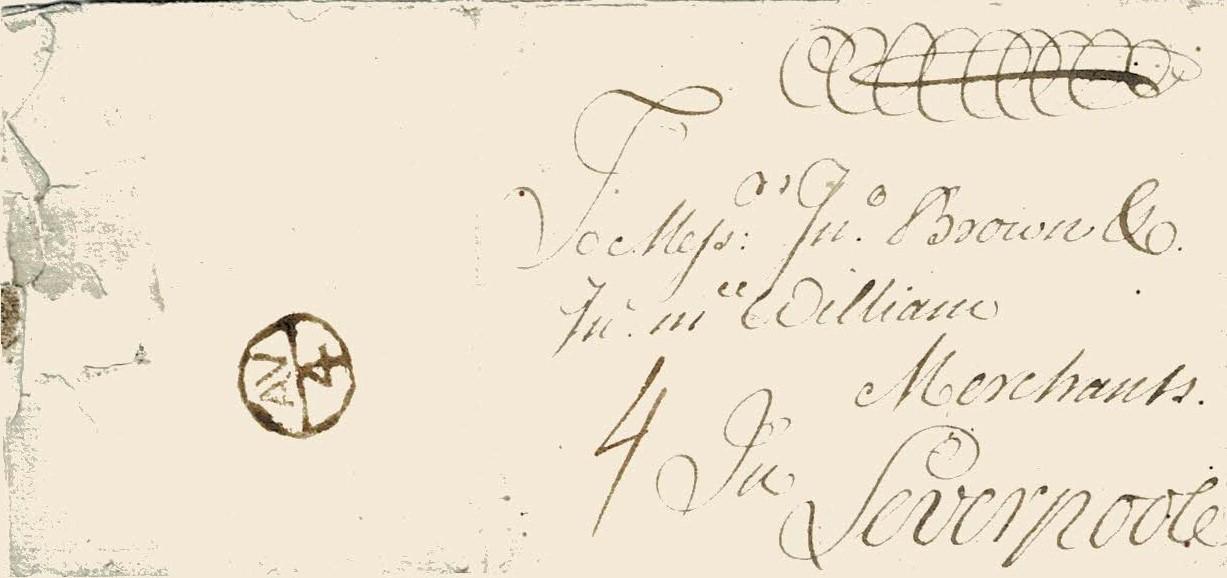 To Messrs: Jno. Brown &
Jno. mcc William
Merchants.
4 In
Leverpoole
AV
4